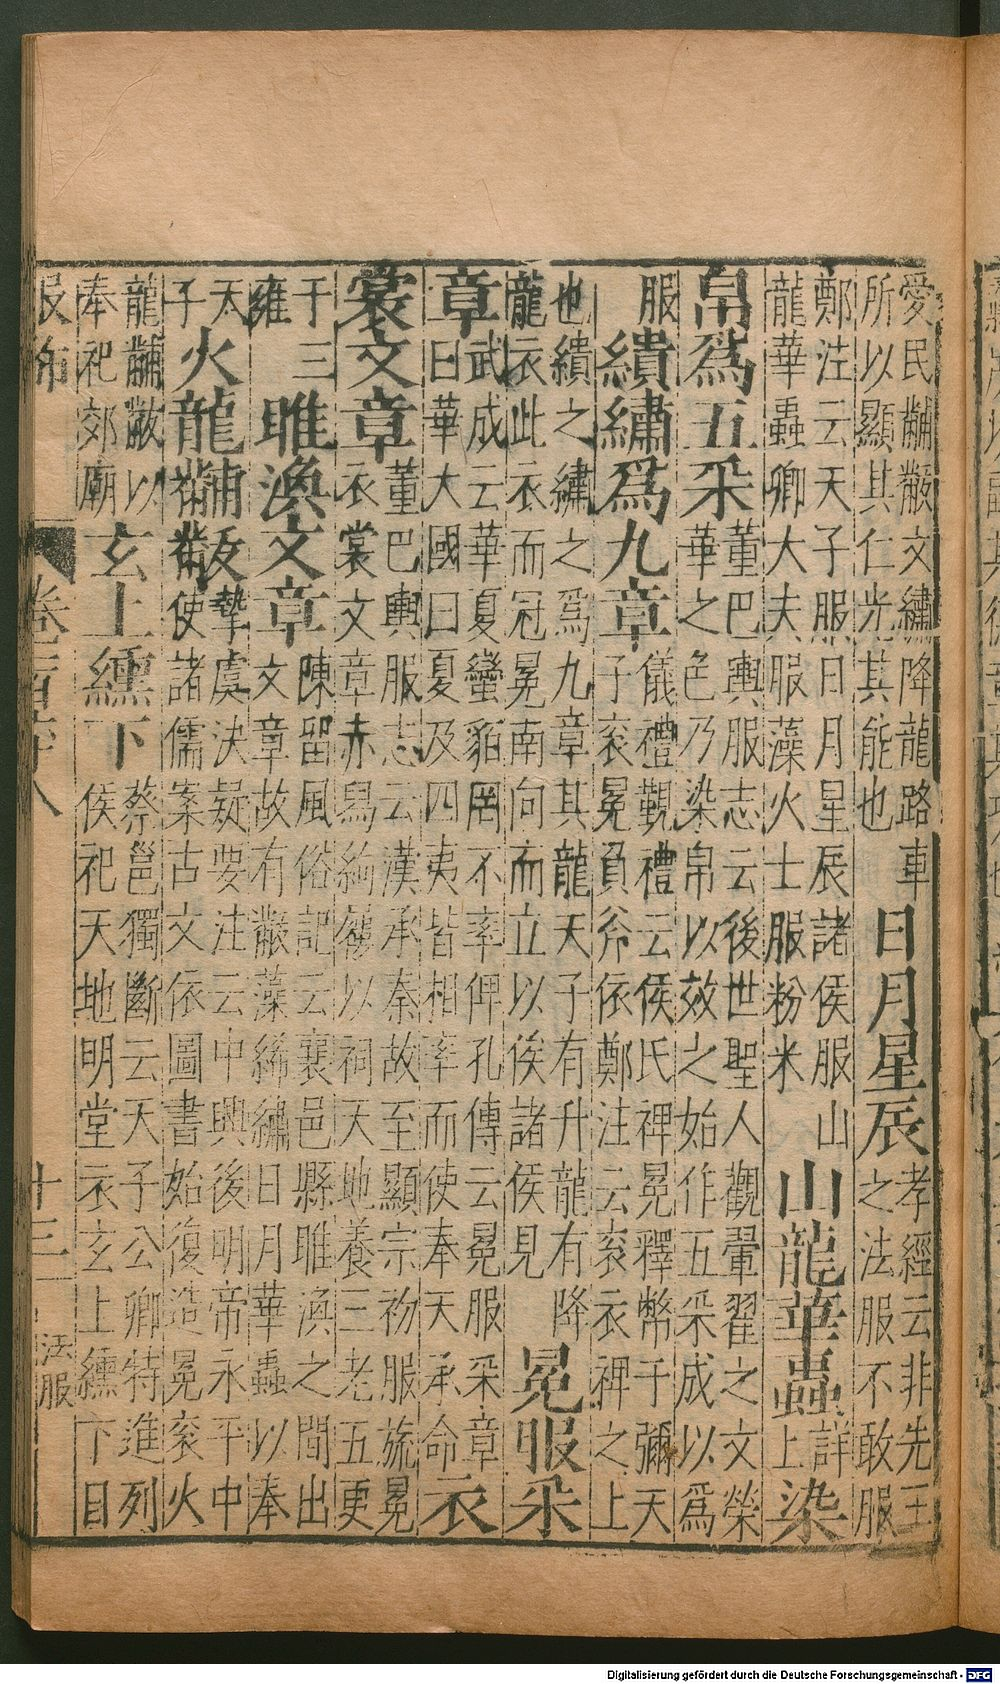 愛民黼黻文繡降龍路車
所以顯其仁光其能也
日月星辰
孝經云非先王
之法服不敢服
鄭注云天子服日月星辰諸侯服山
龍華蟲卿大夫服藻火士服粉米
山龍華蟲
詳
上
染
帛爲五采
董巴輿服志云後世聖人觀翬翟之文榮
華之色乃染帛以效之始作五采成以爲
服
繢繡爲九章
儀禮觀禮云侯氏裨冕釋幣于彌天
子衮冕負斧依鄭注云衮衣裨之上
也繢之繡之爲九章其龍天子有升龍有降
龍衣此衣而冠冕南向而立以俟諸侯見
冕服采
章
武成云華夏蠻貊罔不率俾孔傳云冕服采章
曰華大國曰夏及四夷皆相率而使奉天承命
衣
裳文章
董巴輿服志云漢承秦故至顯宗初服旒冕
衣裳文章赤舄絇屨以祠天地養三老五更
于三
雍
睢渙文章
陳留風俗記云襄邑縣睢渙之間出
文章故有黻藻絺繡日月華蟲以奉
天
子
火龍黼黻
摯虞決疑要注云中興後明帝永平中
使諸儒案古文依圖書始復造冕衮火
龍黼黻以
奉祀郊廟
玄上纁下
蔡邕獨斷云天子公卿特進列
侯祀天地明堂衣玄上纁下目
服飾
十三
法服
Digitalisierung gefördert durch die Deutsche Forschungsgemeinschaft - DFG